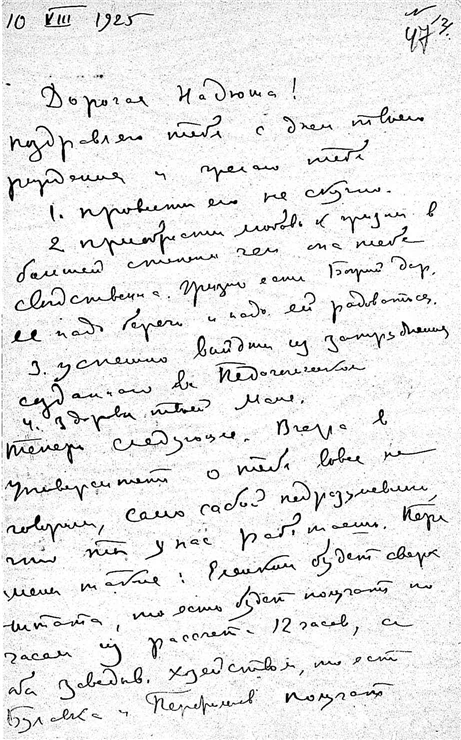 10 VIII 1925
N 47
Дорогая Надюша!
поздравляю тебя с днем твоего
рождения и желаю тебе
1. провести его не скучно.
2 приобрести любовь к жизни в
большей степени чем она тебе
свойственна. Жизнь есть Божий дар.
ее надо беречь и надо ей радоваться.
3. успешно выйти из затруднения
созданного в Педагогическом
4. здоровья твоей Маме.
Теперь следующее. Вчера в
Университете о тебе вовсе не
говорили, само собой подразумевали
что ты у нас работаешь. Пере
мены такие: Еленкин будет сверх
штата, то есть будет получать по
часам из рассчета 12 часов, а
оба заведыв. хозяйством, то есть
Булавка и Перфильев получать